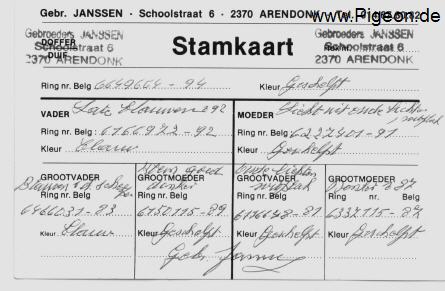 Gebr. JANSSEN - Schoolstraat 6 - 2370 ARENDONK
www.Pigeon.de
Gebroeders JANSSEN
Schoolstraat 6
2370 ARENDONK
DOFFER
DUIF
Stamkaart
Gebroeders JANSSEN
Schoolstraat 6
2370 ARENDONK
Ring nr. Belg 6649664-94 Kleur Geschelpt
VADER Late Blauwen 292
Ring nr. Belg: 6166972-92
Kleur Blauw
MOEDER
Ring nr. Belg: 6237401-91
Kleur Geschelpt
GROOTVADER
Ring nr. Belg
6466031-83
Kleur Blauw
GROOTMOEDER
donker
Ring nr. Belg
6150115-89
Kleur Geschelpt
GROOTVADER
Ring nr. Belg
Kleur Geschelpt
GROOTMOEDER
Ring nr. Belg
6337115-87
Kleur Geschelpt
Gebr. Janssen